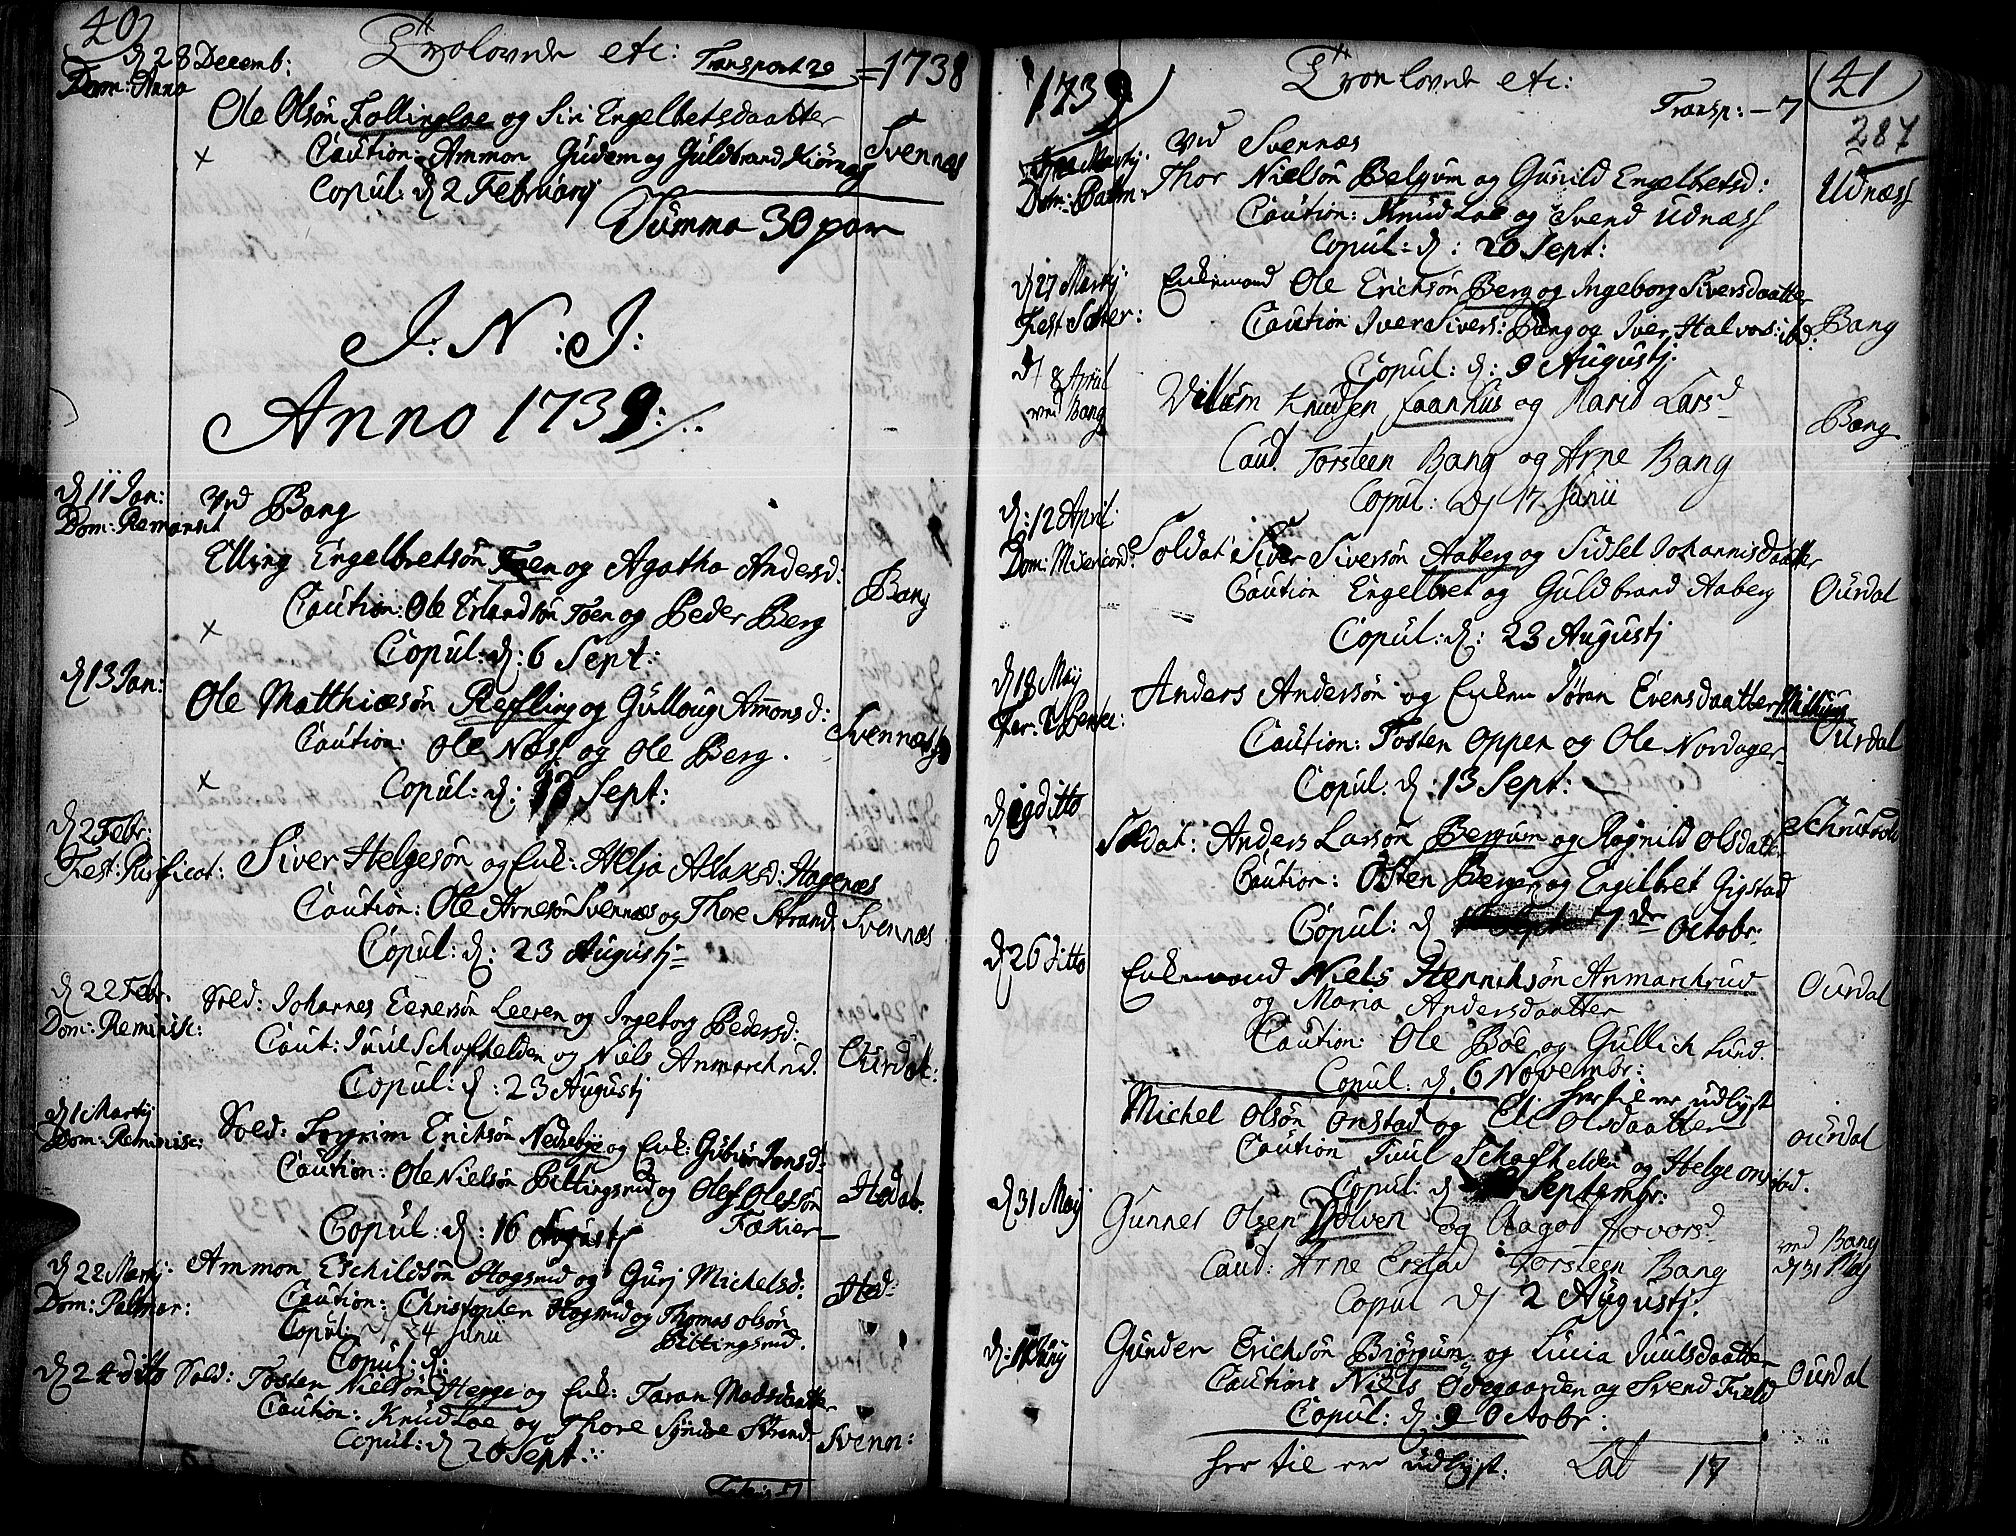 40
Trolovede etc: Transport 29 = 1738
d 28 Decemb:
Dom: Anna
Ole Olsön Follingloe og Siri Engelbretsdaatter
Caution: Ammon Gudem og Guldbrand Kiörnaas
Svennæs
Copul: d 2 February
Summa 30 par
J: N: J:
Anno 1739:
d 11 Jan: ved Bang
Dom:
Elling Engelbretsön Foen og Agatha Andersd:
Caution: Ole Erlandsön Foen og Peder Berg
Bang
Copul: d: 6 Sept:
d 13 Jan:
Ole Matthiæsön Refling og Gulloug Amonsd:
Caution: Ole Næss og Ole Berg.
Svennæss
Copul: d: 13 Sept:
d 2 Febr:
Fest: Purificat: Siver Helgesön og Enk: Helja Aslaksd: Hagenæs
Caution: Ole Arnesön Svennæs og Thore Strand.
Svennæs
Copul: d: 23 Augustj
d 22 Febr.
Dom: Reminisc:
Sold: Johannes Eenersön Leeren og Ingeborg Pedersd:
Caut: Juul Schafthelden og Niels Anmarchrud.
Ourdal:
Copul: d: 23 Augustj
d 1 Martij
Dom: Reminisc:
Sold: Erichsön Nedrebye og Enk: Jonsd:
Caution: Ole Nielsön Bittingsrud og Olef Olessön Fækier
Hedal:
Copul: d: 16 Augustj
d 22 Martij:
Dom: Palmar:
Ammon Eschildsön Hogsrud og Gurj Michelsd:
Caution: Christopher Hogsrud og Thomas Olsön Bittingsrud.
Hed:
Copul: d 24 Junii
Copul: d:
d 24 ditto Sold: Tosten Nielsön Hegge og Enk: Taran Madsdaatter
Caution: Knud Loe og Thore Strand.
Svenn:
Copul: d 20 Sept::
1739
Tronlovede etc:
41
Transp: - 7
287
ved Svennæs
Dom: Palm:
Thor Nielsön Belgum og Gunild Engelbretsd:
Udnæss
Caution: Knud Loe og Svend Udnæss
Copul: d: 20 Sept:
d 27 Martij
Enkemand Ole Erichsön Berg og Ingeborg Siversdaatter
Caution Iver Sivers: Bang og Iver Halvors: ibd:
Bang
Copul: d: 9 Augustj:
d 8 Apriil
ved Bang
Vilum Knudsen Faanhus og Marid Larsd
Bang
Caud Torsteen Bang og Arne Bang
Copul: d 17 Junii
d: 12 April:
Dom: Misericord:
Soldat Siver Siversön Aaberg og Sidsel Johannisdaatter
Caution Engelbret og Guldbrand Aaberg
Ourdal
Copul: d: 23 Augustj
d 18 Maij
Anders Andersön og Enken Jöran Evensdaatter
Caution: Tosten Oppen og Ole Nordager
Ourdal
Copul: d: 13 Sept:
d 19 ditto
Soldat: Anders Larsön Berrum og Ragnild Olsdatter
Caution: Östen Berger og Engilbret Gigstad
Copul: d 7de Octobr:
d 26 ditto
Enkemand Niels Henrichsön Anmarchrud
og Maria Andersdaatter
Ourdal
Caution: Ole Böe og Gullich Lund.
Copul: d. 6 Novembr:
her til er udlyst
Michel Olsön Onstad og Eli Olsdaatter
ourdal
Caution Juul Schafthelden og Helge Onstad.
Copul: d Septembr:
d 31 Maij
Gunner Olsen Dölven og Aagod Havorsd
ved Bang
d 31 Maij
Caud: Arne Erstad Torsteen Bang
Copul d 2 Augustj:
Gunder Erichsön Biörgum og Lucia Juulsdaatter
Ourdal
Caution: Niels Ödegaarden og Svend Field
Copul: d: 9 Octobr:
her til er udlyst: Lat 17